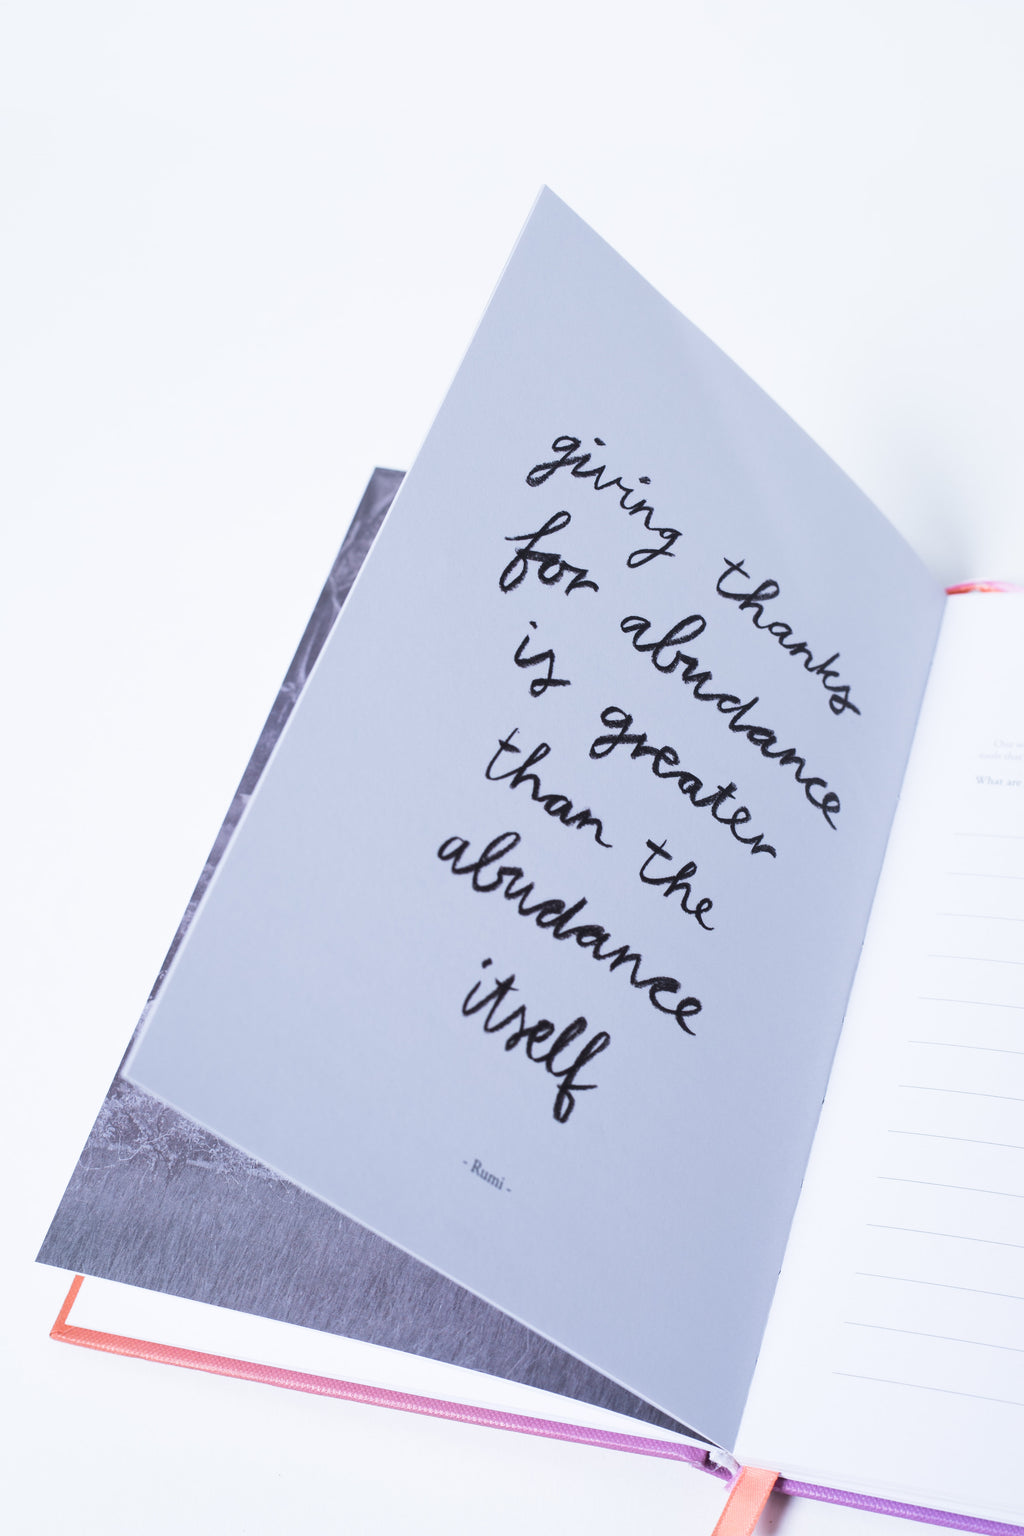 giving thanks
for abudance
is greater
than the
abudance
itself
- Rumi -
Our
that
What are